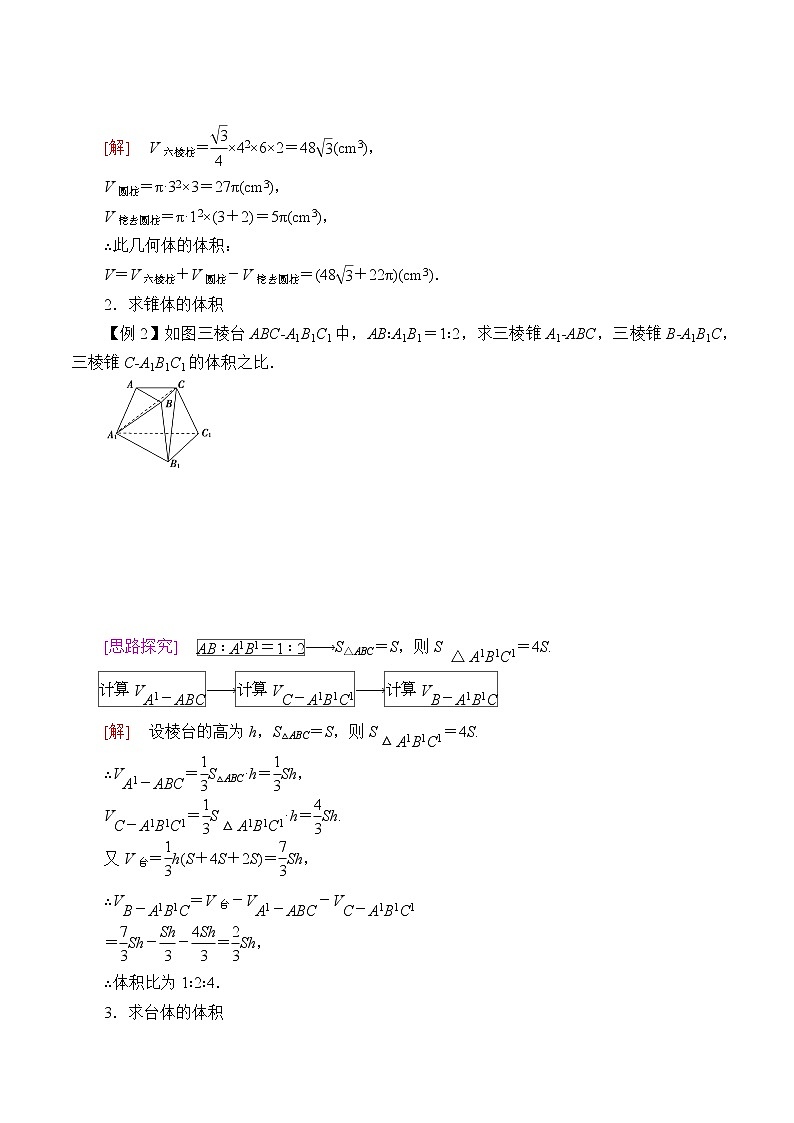 [解] V六棱柱=√3/4×4²×6×2=48√3(cm³),
V圆柱=π·3²×3=27π(cm³),
V挖去圆柱=π·1²×(3+2)=5π(cm³),
∴此几何体的体积:
V=V六棱柱+V圆柱-V挖去圆柱=(48√3+22π)(cm³).
2.求锥体的体积
【例2】如图三棱台ABC-A₁B₁C₁中,AB∶A₁B₁=1∶2,求三棱锥A₁-ABC,三棱锥B-A₁B₁C,
三棱锥C-A₁B₁C₁的体积之比.
A C
B
A₁ C₁
B₁
[思路探究] AB∶A1B1=1∶2⟶S△ABC=S,则S△A1B1C1=4S.
计算VA1-ABC⟶计算VC-A1B1C1⟶计算VB-A1B1C
[解] 设棱台的高为h,S△ABC=S,则S△A1B1C1=4S.
∴VA1-ABC=1/3S△ABC·h=1/3Sh,
VC-A1B1C1=1/3S△A1B1C1·h=4/3Sh.
又V台=1/3h(S+4S+2S)=7/3Sh,
∴VB-A1B1C=V台-VA1-ABC-VC-A1B1C1
=7/3Sh-Sh/3-4Sh/3=2/3Sh,
∴体积比为1∶2∶4.
3.求台体的体积